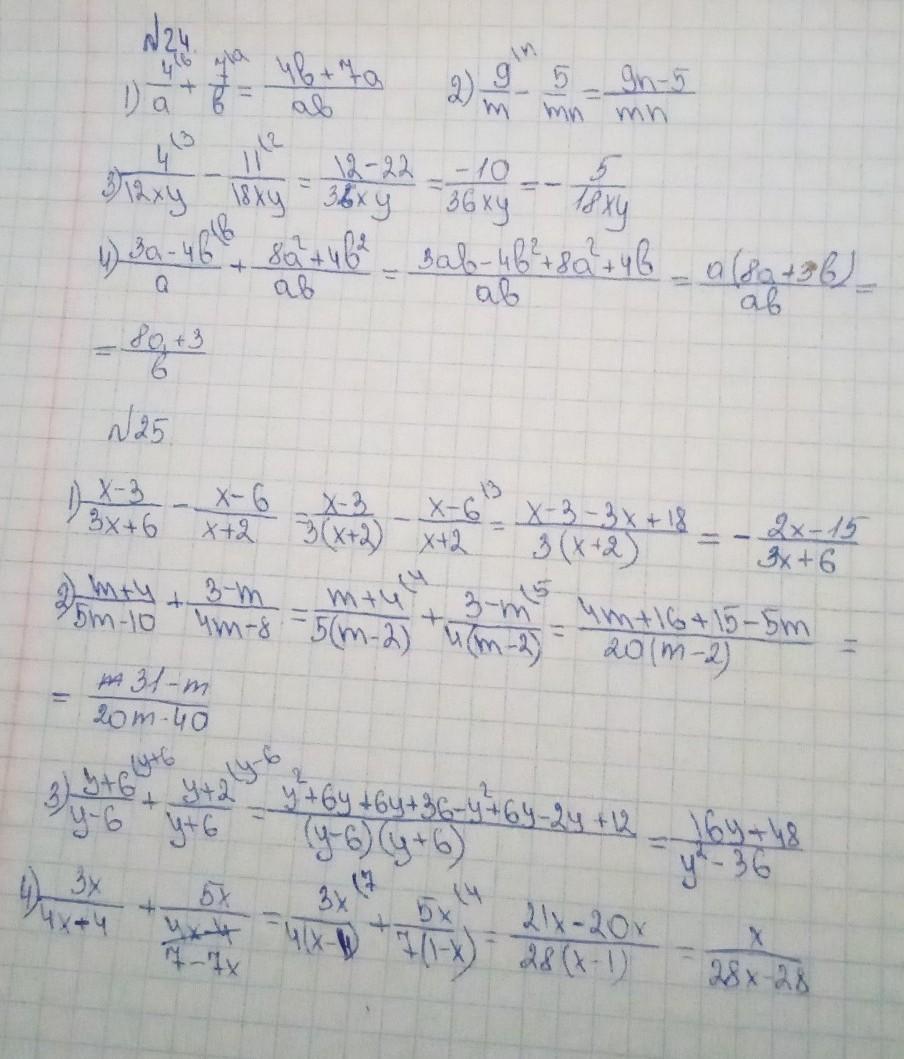 №24.
1) 4⁽ᵇ/a + 7⁽ᵃ/b = (4b+7a)/(ab)   2) 9⁽ⁿ/m − 5/(mn) = (9n−5)/(mn)
3) 4⁽³/(12xy) − 11⁽²/(18xy) = (12−22)/(36xy) = (−10)/(36xy) = − 5/(18xy)
4) (3a−4b)⁽ᵇ/a + (8a²+4b²)/(ab) = (3ab−4b²+8a²+4b)/(ab) = a(8a+3b)/(ab) =
= (8a+3)/b
№25.
1) (x−3)/(3x+6) − (x−6)/(x+2) = (x−3)/(3(x+2)) − (x−6)⁽³/(x+2) = (x−3−3x+18)/(3(x+2)) = − (2x−15)/(3x+6)
2) (m+4)/(5m−10) + (3−m)/(4m−8) = (m+4)⁽⁴/(5(m−2)) + (3−m)⁽⁵/(4(m−2)) = (4m+16+15−5m)/(20(m−2)) =
= (31−m)/(20m−40)
3) (y+6)⁽ʸ⁺⁶/(y−6) + (y+2)⁽ʸ⁻⁶/(y+6) = (y²+6y+6y+36−y²+6y−2y+12)/((y−6)(y+6)) = (16y+48)/(y²−36)
4) 3x/(4x+4) + 5x/(7−7x) = 3x⁽⁷/(4(x−1)) + 5x⁽⁴/(7(1−x)) = (21x−20x)/(28(x−1)) = x/(28x−28)